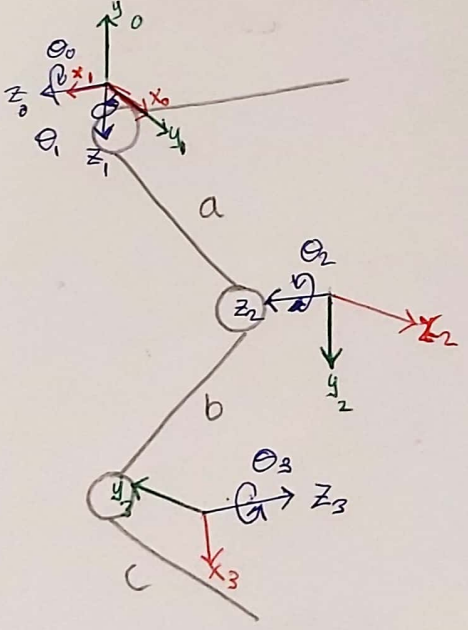 y₀
θ₀
x₁
z₀
x₀
y₁
θ₁
z₁
a
θ₂
z₂
x₂
y₂
b
θ₃
y₃
z₃
x₃
c